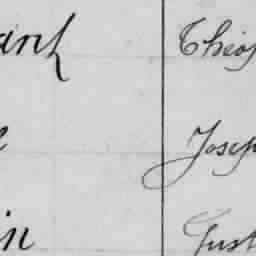 anh Théop
e Joseph
in Gust